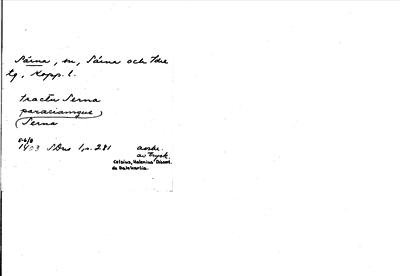 Särna, sn, Särna och Idre
tg, Kopp. l.
tractu Serna
parociamque
Serna
1403 SDns 1, p. 281 avskr.
av tryck.
Celsius, Helenius' Dissert.
de Dalekarlia.